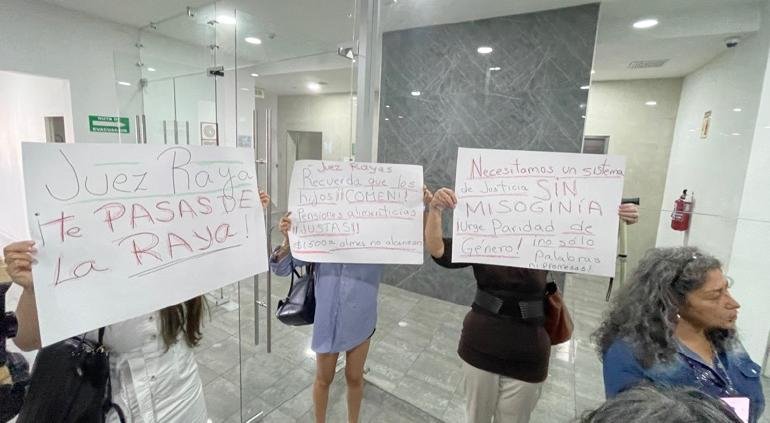 RUTA DE
EVACUACIÓN
Juez Raya
¡te PASAS DE
LA RAYA!
Juez Rayas
Recuerda que los
hijos ¡¡COMEN!!
Pensiones alimenticias
¡¡JUSTAS!!
$1,500 al mes no alcanzan
Necesitamos un sistema
de Justicia SIN
MISOGINÍA
¡Urge Paridad de
Género! ¡no solo
Palabras
ni promesas!